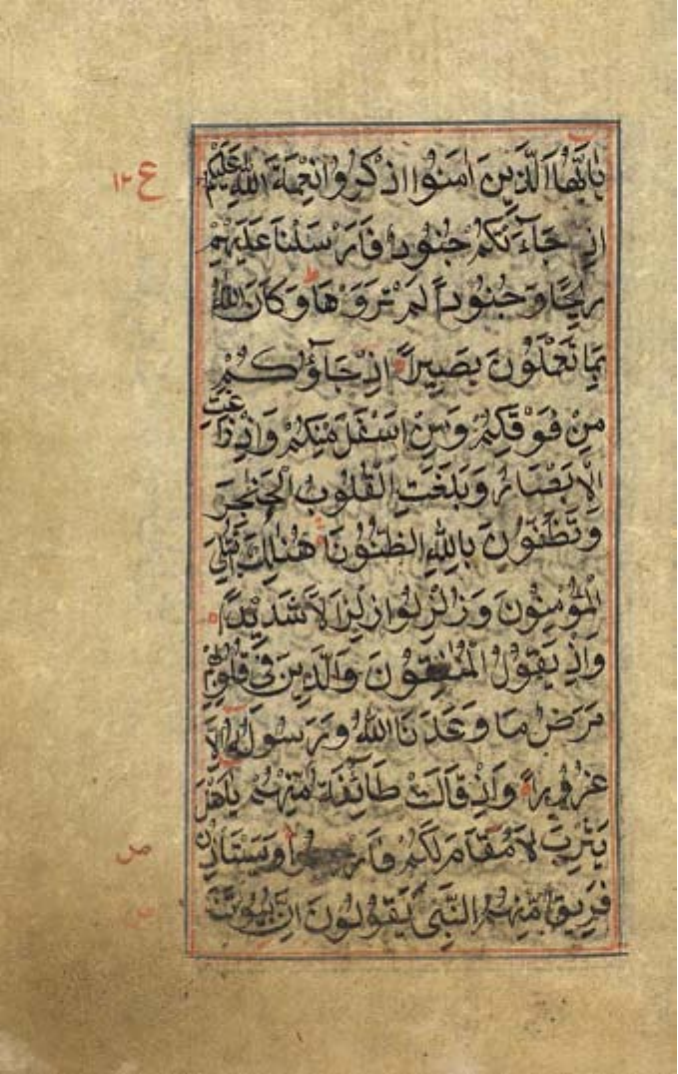 يٰاَيُّهَا الَّذِيْنَ اٰمَنُوا اذْكُرُوْا نِعْمَةَ اللّٰهِ عَلَيْكُمْ
اِذْ جَآءَتْكُمْ جُنُوْدٌ فَاَرْسَلْنَا عَلَيْهِمْ
رِيْحًا وَّ جُنُوْدًا لَّمْ تَرَوْهَا وَكَانَ اللّٰهُ
بِمَا تَعْمَلُوْنَ بَصِيْرًا اِذْ جَآؤُكُمْ
مِنْ فَوْقِكُمْ وَمِنْ اَسْفَلَ مِنْكُمْ وَاِذْ زَاغَتِ
الْاَبْصَارُ وَبَلَغَتِ الْقُلُوْبُ الْحَنٰجِرَ
وَتَظُنُّوْنَ بِاللّٰهِ الظُّنُوْنَا هُنَالِكَ ابْتُلِيَ
الْمُؤْمِنُوْنَ وَزُلْزِلُوْا زِلْزَالًا شَدِيْدًا
وَاِذْ يَقُوْلُ الْمُنٰفِقُوْنَ وَالَّذِيْنَ فِيْ قُلُوْبِهِمْ
مَرَضٌ مَا وَعَدَنَا اللّٰهُ وَرَسُوْلُهٗ اِلَّا
غُرُوْرًا وَاِذْ قَالَتْ طَائِفَةٌ مِنْهُمْ يٰاَهْلَ
يَثْرِبَ لَا مُقَامَ لَكُمْ فَارْجِعُوْا وَيَسْتَاْذِنُ
فَرِيْقٌ مِنْهُمُ النَّبِيَّ يَقُوْلُوْنَ اِنَّ بُيُوْتَنَا
ع ١٢
ص